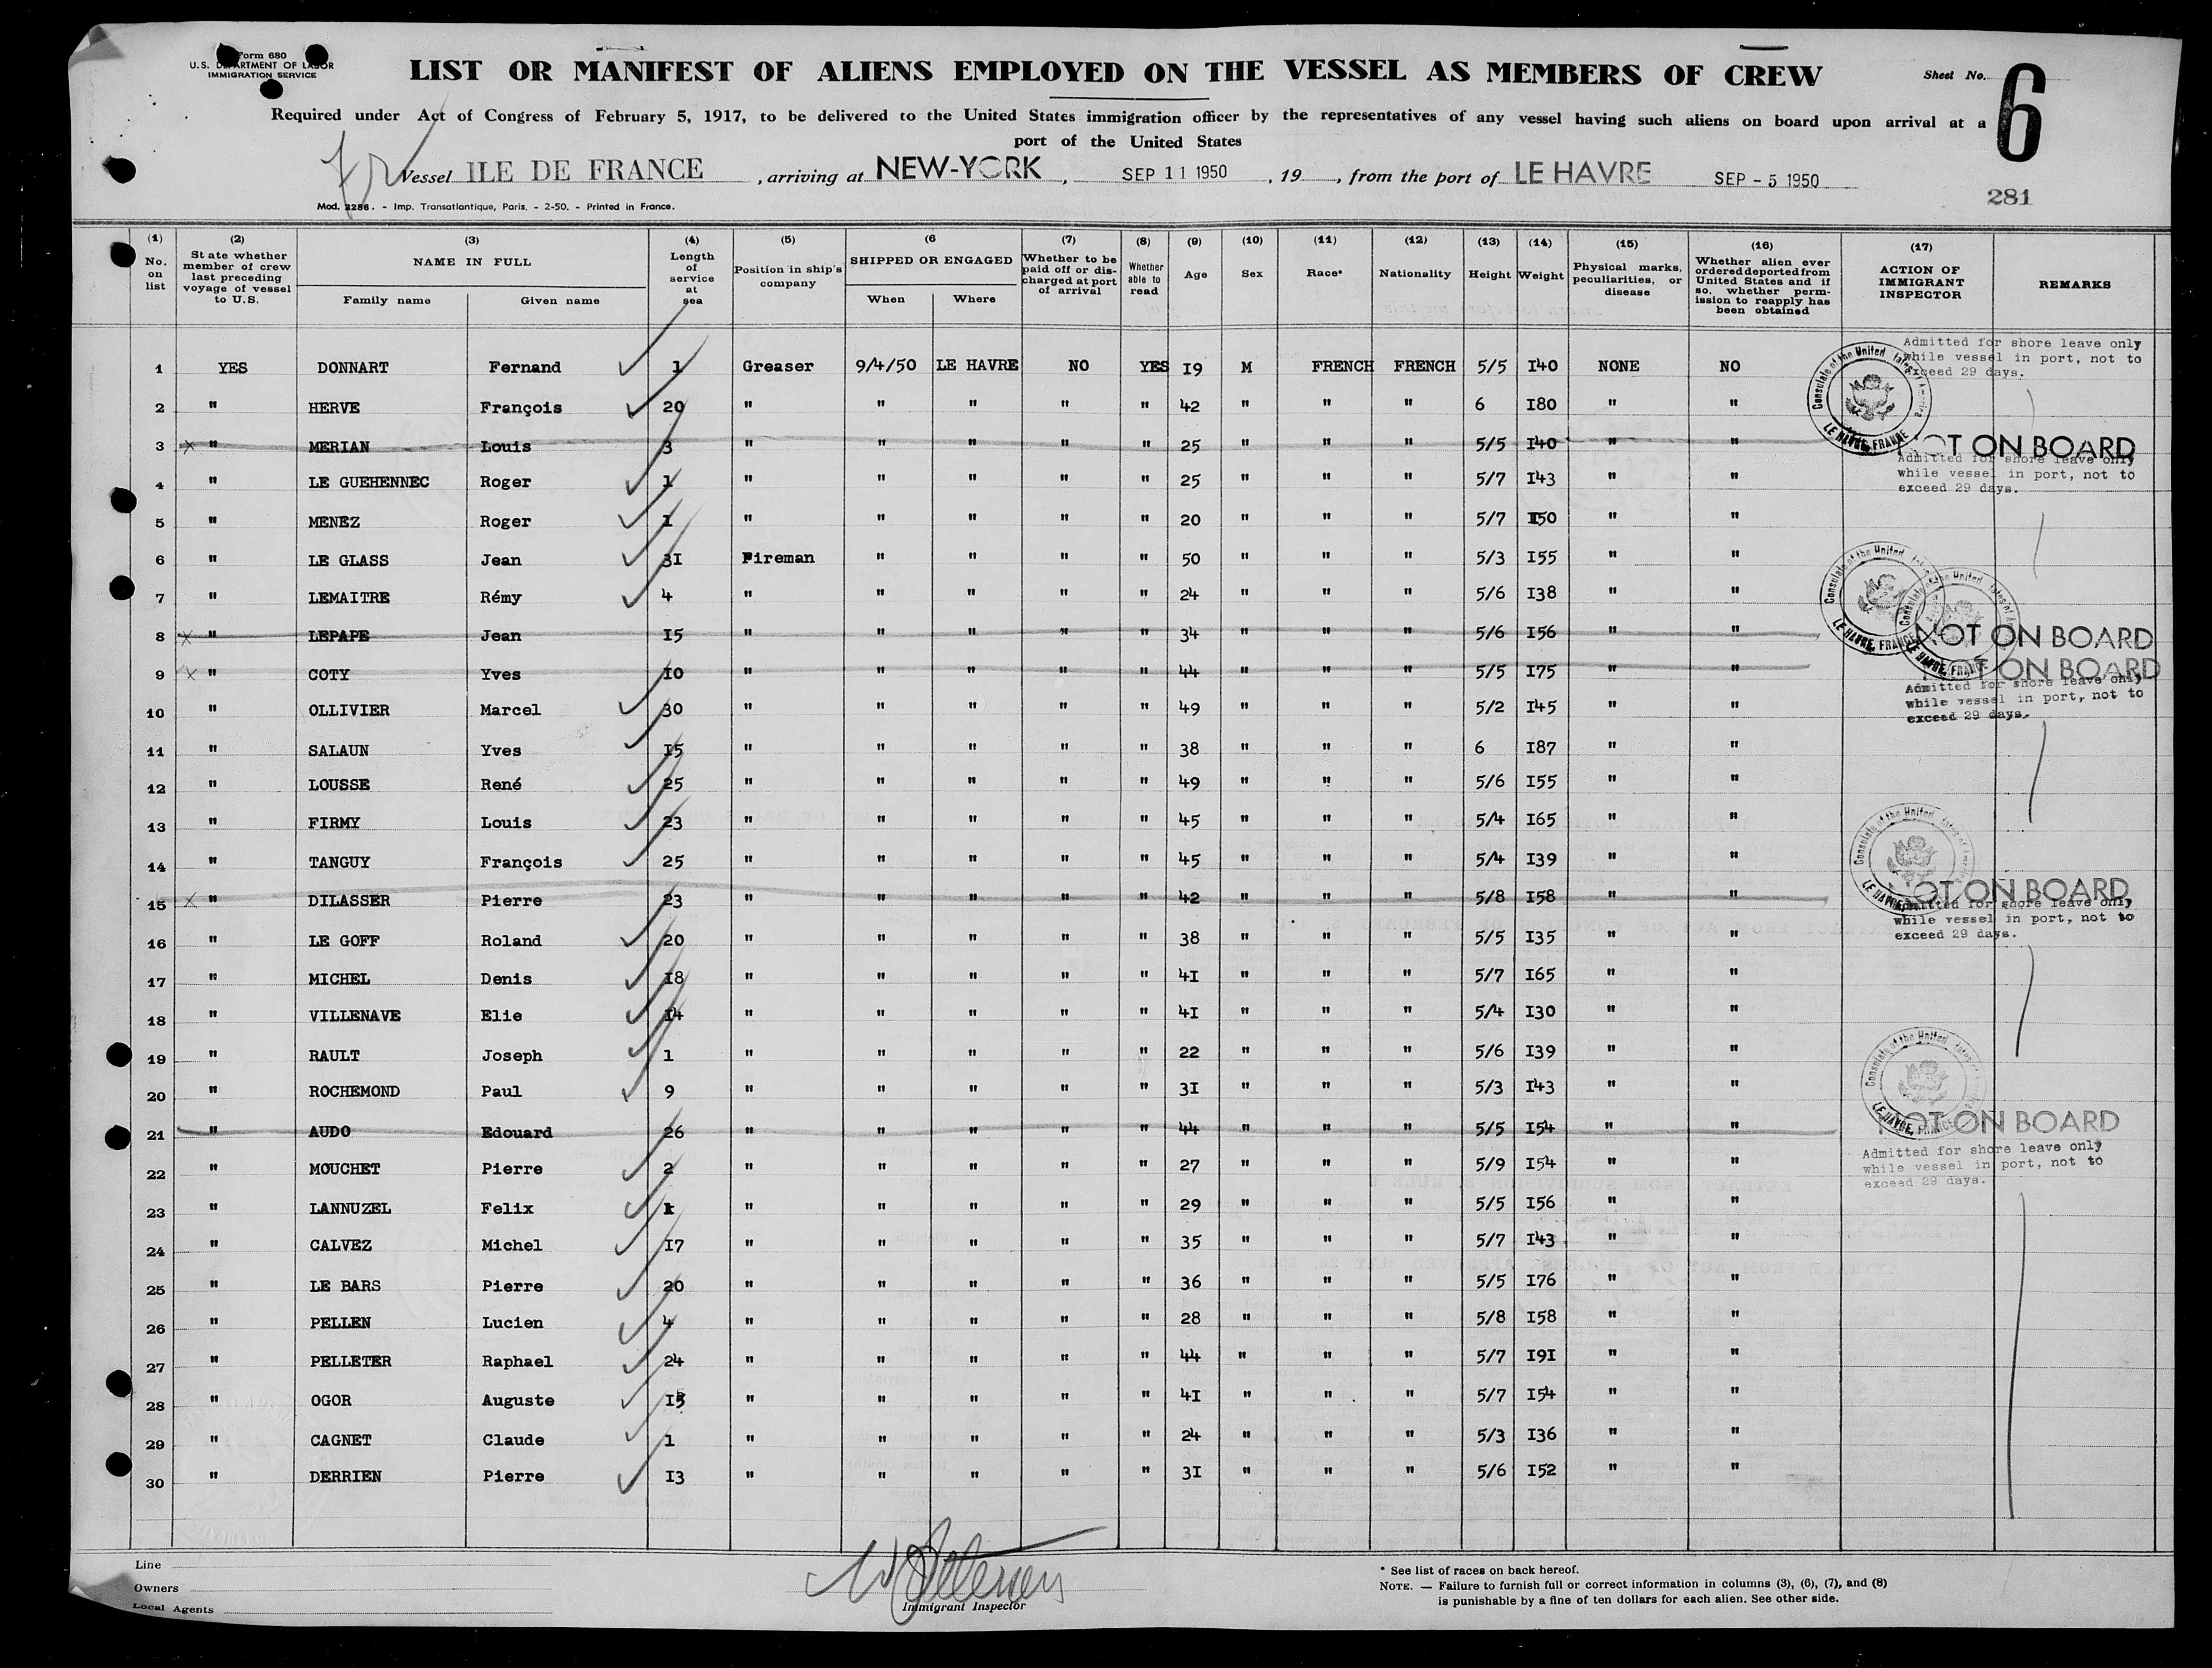 Form 680
U.S. DEPARTMENT OF LABOR
IMMIGRATION SERVICE
LIST OR MANIFEST OF ALIENS EMPLOYED ON THE VESSEL AS MEMBERS OF CREW
Sheet No. 6
Required under Act of Congress of February 5, 1917, to be delivered to the United States immigration officer by the representatives of any vessel having such aliens on board upon arrival at a
port of the United States
Vessel ILE DE FRANCE, arriving at NEW-YORK, SEP 11 1950, 19, from the port of LE HAVRE SEP - 5 1950
281
Mod. 2286. - Imp. Transatlantique, Paris. - 2-50. - Printed in France.
(1) No. on list
(2) State whether member of crew last preceding voyage of vessel to U.S.
(3) NAME IN FULL Family name Given name
(4) Length of service at sea
(5) Position in ship's company
(6 SHIPPED OR ENGAGED When Where
(7) Whether to be paid off or discharged at port of arrival
(8) Whether able to read
(9) Age
(10) Sex
(11) Race*
(12) Nationality
(13) Height
(14) Weight
(15) Physical marks, peculiarities, or disease
(16) Whether alien ever ordered deported from United States and if so, whether permission to reapply has been obtained
(17) ACTION OF IMMIGRANT INSPECTOR
REMARKS
1 YES DONNART Fernand 1 Greaser 9/4/50 LE HAVRE NO YES 19 M FRENCH FRENCH 5/5 140 NONE NO Admitted for shore leave only while vessel in port, not to exceed 29 days.
2 " HERVE François 20 " " " " " 42 " " " 6 180 " "
3 " MERIAN Louis 3 " " " " " 25 " " " 5/5 140 " " NOT ON BOARD
4 " LE GUEHENNEC Roger 1 " " " " " 25 " " " 5/7 143 " " Admitted for shore leave only while vessel in port, not to exceed 29 days.
5 " MENEZ Roger 1 " " " " " 20 " " " 5/7 150 " "
6 " LE GLASS Jean 31 Fireman " " " " 50 " " " 5/3 155 " "
7 " LEMAITRE Rémy 4 " " " " " 24 " " " 5/6 138 " "
8 " LEPAPE Jean 15 " " " " " 34 " " " 5/6 156 " " NOT ON BOARD
9 " COTY Yves 10 " " " " " 44 " " " 5/5 175 " " NOT ON BOARD
10 " OLLIVIER Marcel 30 " " " " " 49 " " " 5/2 145 " " Admitted for shore leave only while vessel in port, not to exceed 29 days.
11 " SALAUN Yves 15 " " " " " 38 " " " 6 187 " "
12 " LOUSSE René 25 " " " " " 49 " " " 5/6 155 " "
13 " FIRMY Louis 23 " " " " " 45 " " " 5/4 165 " "
14 " TANGUY François 25 " " " " " 45 " " " 5/4 139 " "
15 " DILASSER Pierre 23 " " " " " 42 " " " 5/8 158 " " NOT ON BOARD
16 " LE GOFF Roland 20 " " " " " 38 " " " 5/5 135 " " Admitted for shore leave only while vessel in port, not to exceed 29 days.
17 " MICHEL Denis 18 " " " " " 41 " " " 5/7 165 " "
18 " VILLENAVE Elie 14 " " " " " 41 " " " 5/4 130 " "
19 " RAULT Joseph 1 " " " " " 22 " " " 5/6 139 " "
20 " ROCHEMOND Paul 9 " " " " " 31 " " " 5/3 143 " "
21 " AUDO Edouard 26 " " " " " 44 " " " 5/5 154 " " NOT ON BOARD
22 " MOUCHET Pierre 2 " " " " " 27 " " " 5/9 154 " " Admitted for shore leave only while vessel in port, not to exceed 29 days.
23 " LANNUZEL Felix 1 " " " " " 29 " " " 5/5 156 " "
24 " CALVEZ Michel 17 " " " " " 35 " " " 5/7 143 " "
25 " LE BARS Pierre 20 " " " " " 36 " " " 5/5 176 " "
26 " PELLEN Lucien 4 " " " " " 28 " " " 5/8 158 " "
27 " PELLETER Raphael 24 " " " " " 44 " " " 5/7 191 " "
28 " OGOR Auguste " " " " " 41 " " " 5/7 154 " "
29 " CAGNET Claude 1 " " " " " 24 " " " 5/3 136 " "
30 " DERRIEN Pierre 13 " " " " " 31 " " " 5/6 152 " "
Consulate of the United States of America LE HAVRE, FRANCE
Line
Owners
Local Agents
Immigrant Inspector
* See list of races on back hereof.
NOTE. — Failure to furnish full or correct information in columns (3), (6), (7), and (8)
is punishable by a fine of ten dollars for each alien. See other side.